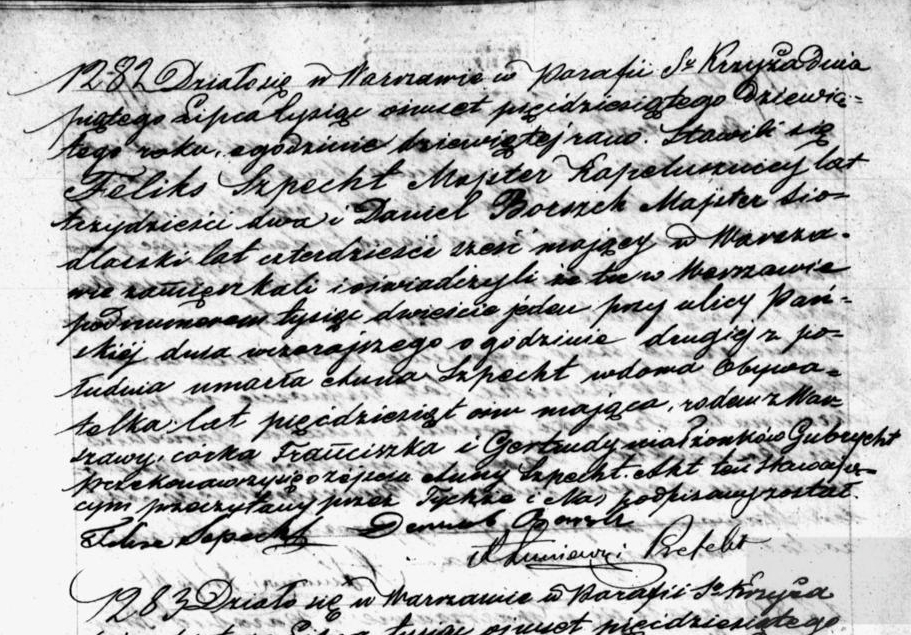 1282 Działo się w Warszawie w Parafii Sº Krzyża dnia
piątego Lipca tysiąc ośmset pięćdziesiątego dziewią=
tego roku, o godzinie dziewiątej rano. Stawili się
Feliks Szpecht Majster Kapeluszniczy lat
trzydzieści dwa i Daniel Borszch Majster sio=
dlarski lat czterdzieści sześć mający w Warsza=
wie zamieszkali i oświadczyli że tu w Warszawie
pod numerem tysiąc dwieście jeden przy ulicy Pań=
skiéj dnia wczorajszego o godzinie drugiéj z po=
łudnia umarła Anna Szpecht wdowa Obywa=
telka lat pięćdziesiąt ośm mająca, rodem z War
szawy, córka Franciszka i Gertrudy małżonków Gubrycht
Przekonawszy się o zejściu Anny Szpecht. Akt ten stawają=
cym przeczytany przez Tychże i Nas podpisany został.
Felix Szpecht Daniel
Prefekt
1283 Działo się w Warszawie w Parafii Sº Krzyża
Lipca tysiąc ośmset pięćdziesiątego